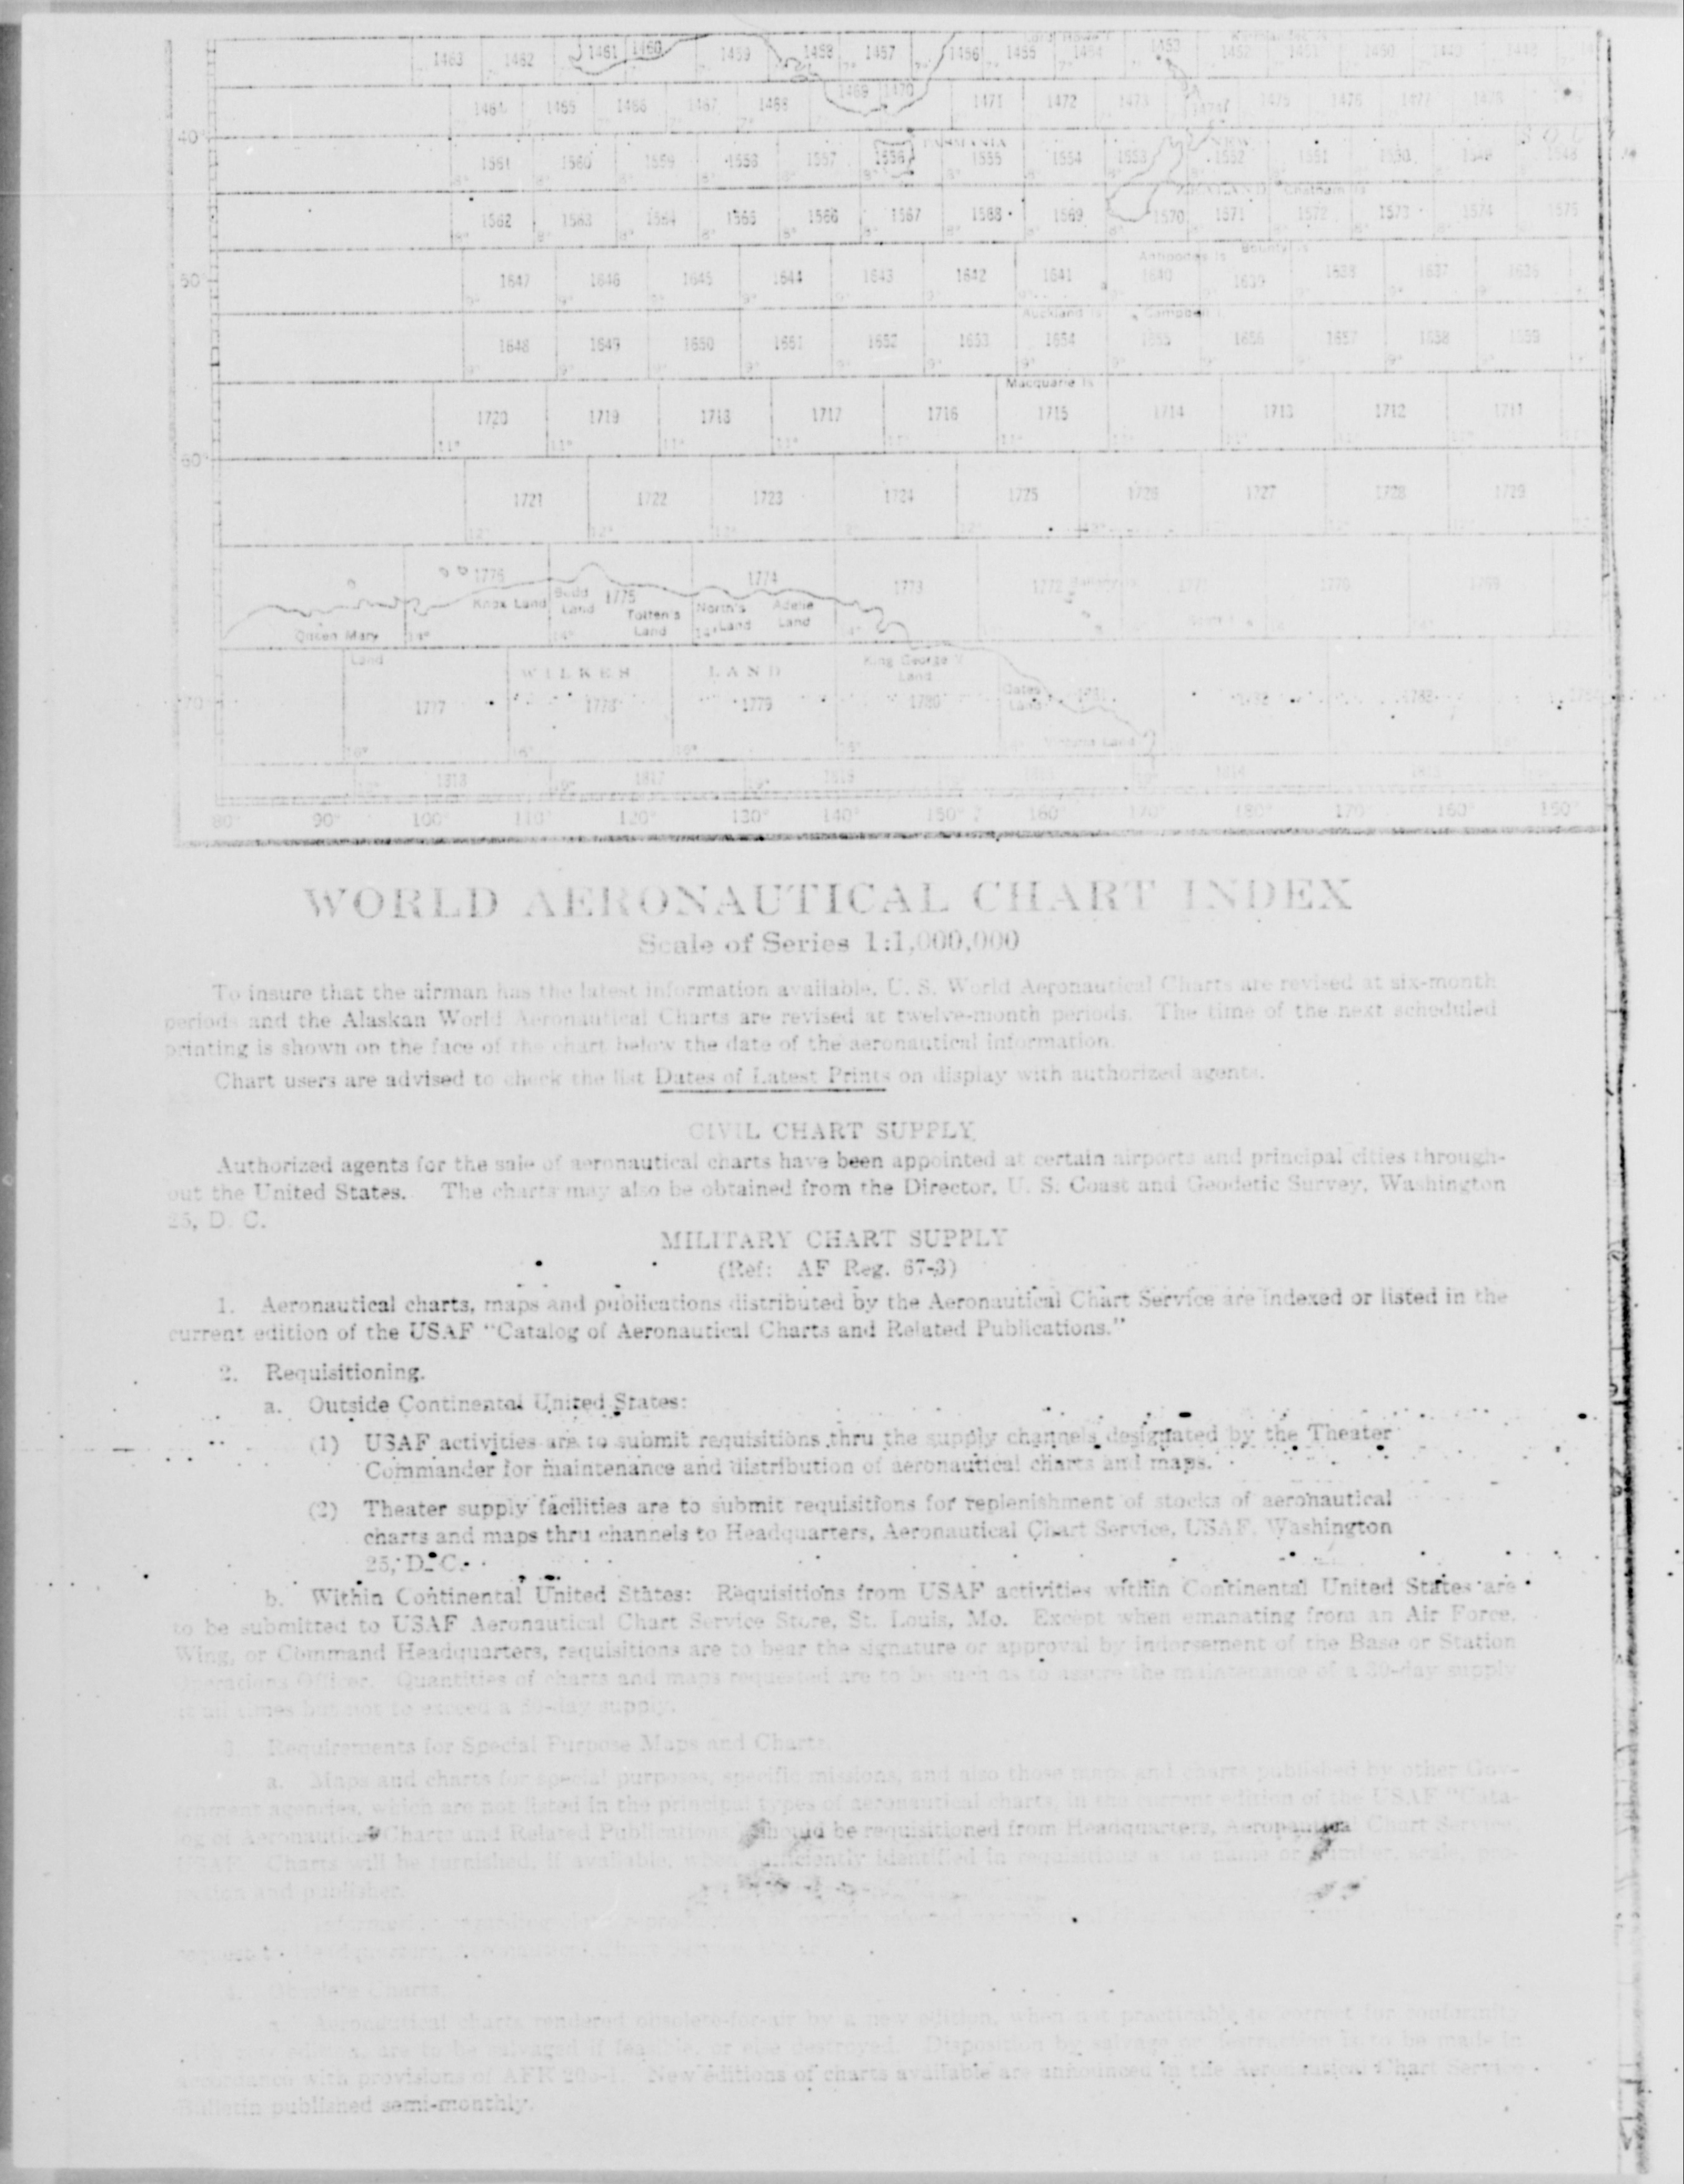 1463 1462 1461 1460 1459 1458 1457 1456 1455 1454 1453 1452 1451 1450 1449 1448
1464 1465 1466 1467 1468 1469 1470 1471 1472 1473 1474 1475 1476 1477 1478
40°
1561 1560 1559 1558 1557 1556 1555 1554 1553 1552 1551 1550 1549 1548
ZEALAND Chatham Is
1562 1563 1564 1565 1566 1567 1568 1569 1570 1571 1572 1573 1574 1575
Antipodes Is Bounty Is
50°
1647 1646 1645 1644 1643 1642 1641 1640 1639 1638 1637 1636
Auckland Is Campbell I
1648 1649 1650 1651 1652 1653 1654 1655 1656 1657 1658 1659
Macquarie Is
1720 1719 1718 1717 1716 1715 1714 1713 1712 1711
11° 11° 11° 11° 11° 11°
60°
1721 1722 1723 1724 1725 1726 1727 1728 1729
1776 1775 1774 1773 1772 1771 1770 1769
Knox Land Budd Land Totten's Land North's Land Adelie Land
Queen Mary Land
WILKES LAND King George V Land
Oates Land
70°
1777 1778 1779 1780 1781 1782 1783
Victoria Land
1818 1817 1816 1815 1814 1813
80° 90° 100° 110° 120° 130° 140° 150° 160° 170° 180° 170° 160° 150°
WORLD AERONAUTICAL CHART INDEX
Scale of Series 1:1,000,000
To insure that the airman has the latest information available, U. S. World Aeronautical Charts are revised at six-month
periods and the Alaskan World Aeronautical Charts are revised at twelve-month periods. The time of the next scheduled
printing is shown on the face of the chart below the date of the aeronautical information.
Chart users are advised to check the list Dates of Latest Prints on display with authorized agents.
CIVIL CHART SUPPLY
Authorized agents for the sale of aeronautical charts have been appointed at certain airports and principal cities through-
out the United States. The charts may also be obtained from the Director, U. S. Coast and Geodetic Survey, Washington
25, D. C.
MILITARY CHART SUPPLY
(Ref: AF Reg. 67-3)
1. Aeronautical charts, maps and publications distributed by the Aeronautical Chart Service are indexed or listed in the
current edition of the USAF "Catalog of Aeronautical Charts and Related Publications."
2. Requisitioning.
a. Outside Continental United States:
(1) USAF activities are to submit requisitions thru the supply channels designated by the Theater
Commander for maintenance and distribution of aeronautical charts and maps.
(2) Theater supply facilities are to submit requisitions for replenishment of stocks of aeronautical
charts and maps thru channels to Headquarters, Aeronautical Chart Service, USAF, Washington
25, D. C.
b. Within Continental United States: Requisitions from USAF activities within Continental United States are
to be submitted to USAF Aeronautical Chart Service Store, St. Louis, Mo. Except when emanating from an Air Force,
Wing, or Command Headquarters, requisitions are to bear the signature or approval by indorsement of the Base or Station
Operations Officer. Quantities of charts and maps requested are to be such as to assure the maintenance of a 30-day supply
at all times but not to exceed a supply.
3. Requirements for Special Purpose Maps and Charts.
a. Maps and charts for special purposes, specific missions, and also those maps and charts published by other Gov-
ernment agencies, which are not listed in the principal types of aeronautical charts, in the current edition of the USAF "Cata-
log of Aeronautical Charts and Related Publications" should be requisitioned from Headquarters, Aeronautical Chart Service,
USAF. Charts will be furnished, if available, when sufficiently identified in requisitions as to name or number, scale, pro-
jection and publisher.
4. Obsolete Charts.
a. Aeronautical charts rendered obsolete-for-air by a new edition, when not practicable to correct for conformity
edition, are to be salvaged if feasible, or else destroyed. Disposition by salvage or destruction is to be made in
accordance with provisions of AFR New editions of charts available are announced in the Aeronautical Chart Service
Bulletin published semi-monthly.